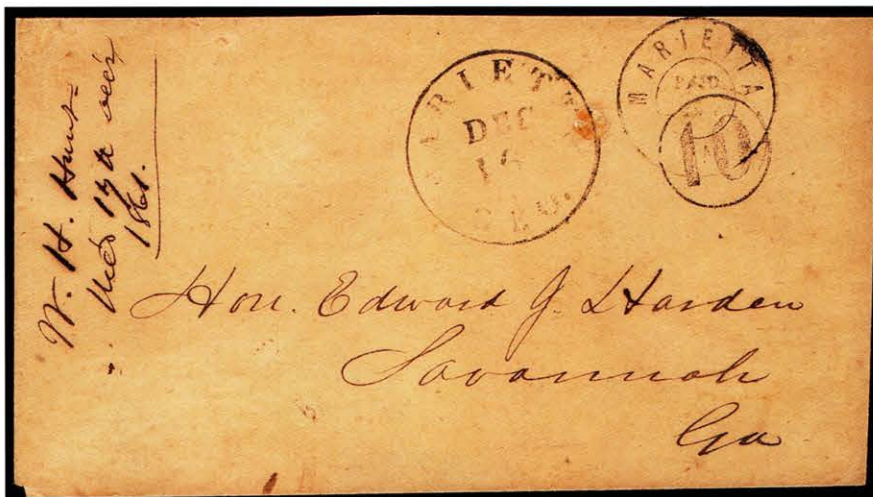 W. H. Hunt
Rec'd 17th Dec'r
1861.
MARIETTA
DEC
16
GEO.
MARIETTA
PAID
10
Hon. Edward J. Harden
Savannah
Ga